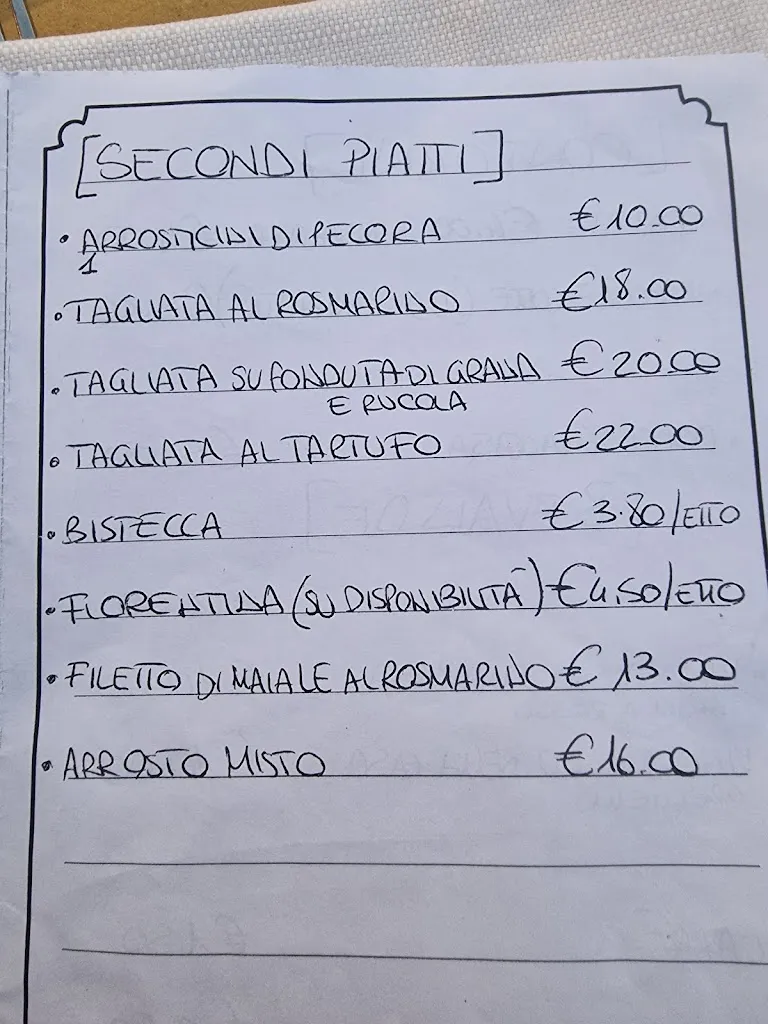 [SECONDI PIATTI]
• ARROSTICINI DI PECORA € 10.00
1
• TAGLIATA AL ROSMARINO € 18.00
• TAGLIATA SU FONDUTA DI GRANA € 20.00
E RUCOLA
• TAGLIATA AL TARTUFO € 22.00
• BISTECCA € 3.80/ETTO
• FIORENTINA (SU DISPONIBILITÀ) € 4,50/ETTO
• FILETTO DI MAIALE AL ROSMARINO € 13.00
• ARROSTO MISTO € 16.00